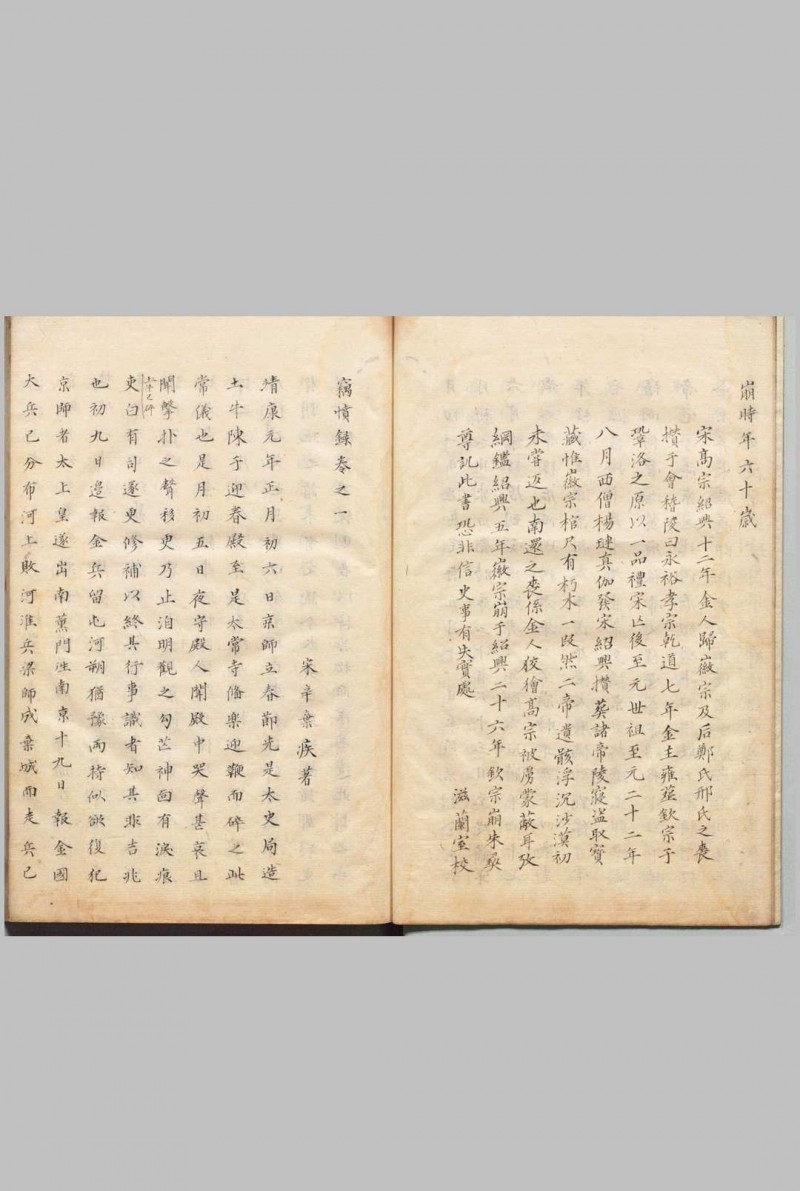 崩時年六十歲
宋高宗紹興十二年金人歸徽宗及后鄭氏邢氏之喪
攢于會稽陵曰永裕孝宗乾道七年金主雍葬欽宗于
鞏洛之原以一品禮宋亡後至元世祖至元二十二年
八月西僧楊璉真伽發宋紹興攢葬諸帝陵寢盜取寶
藏惟徽宗棺尺有朽木一段然二帝遺骸浮沉沙漠初
未嘗返也南還之喪係金人狡獪高宗被虜蒙蔽耳攷
綱鑑紹興五年徽宗崩于紹興二十六年欽宗崩朱奐
尊訊此書恐非信史事有失實處　滋蘭室校
竊憤錄卷之一
宋辛棄疾著
靖康元年正月初六日京師立春節先是太史局造
土牛陳于迎春殿至是太常寺備樂迎鞭而碎之此
常儀也是月初五日夜守殿人聞殿中哭聲甚哀且
聞擊扑之聲移更乃止洎明觀之勾芒神面有淚痕
吏白有司遂更修補以終其行事識者知其非吉兆
也初九日邊報金兵留屯河朔猶豫兩持似欲復犯
京師者太上皇遂出南薰門往南京十九日報金國
大兵已分布河上敗河淮兵梁師成棄城而走兵已